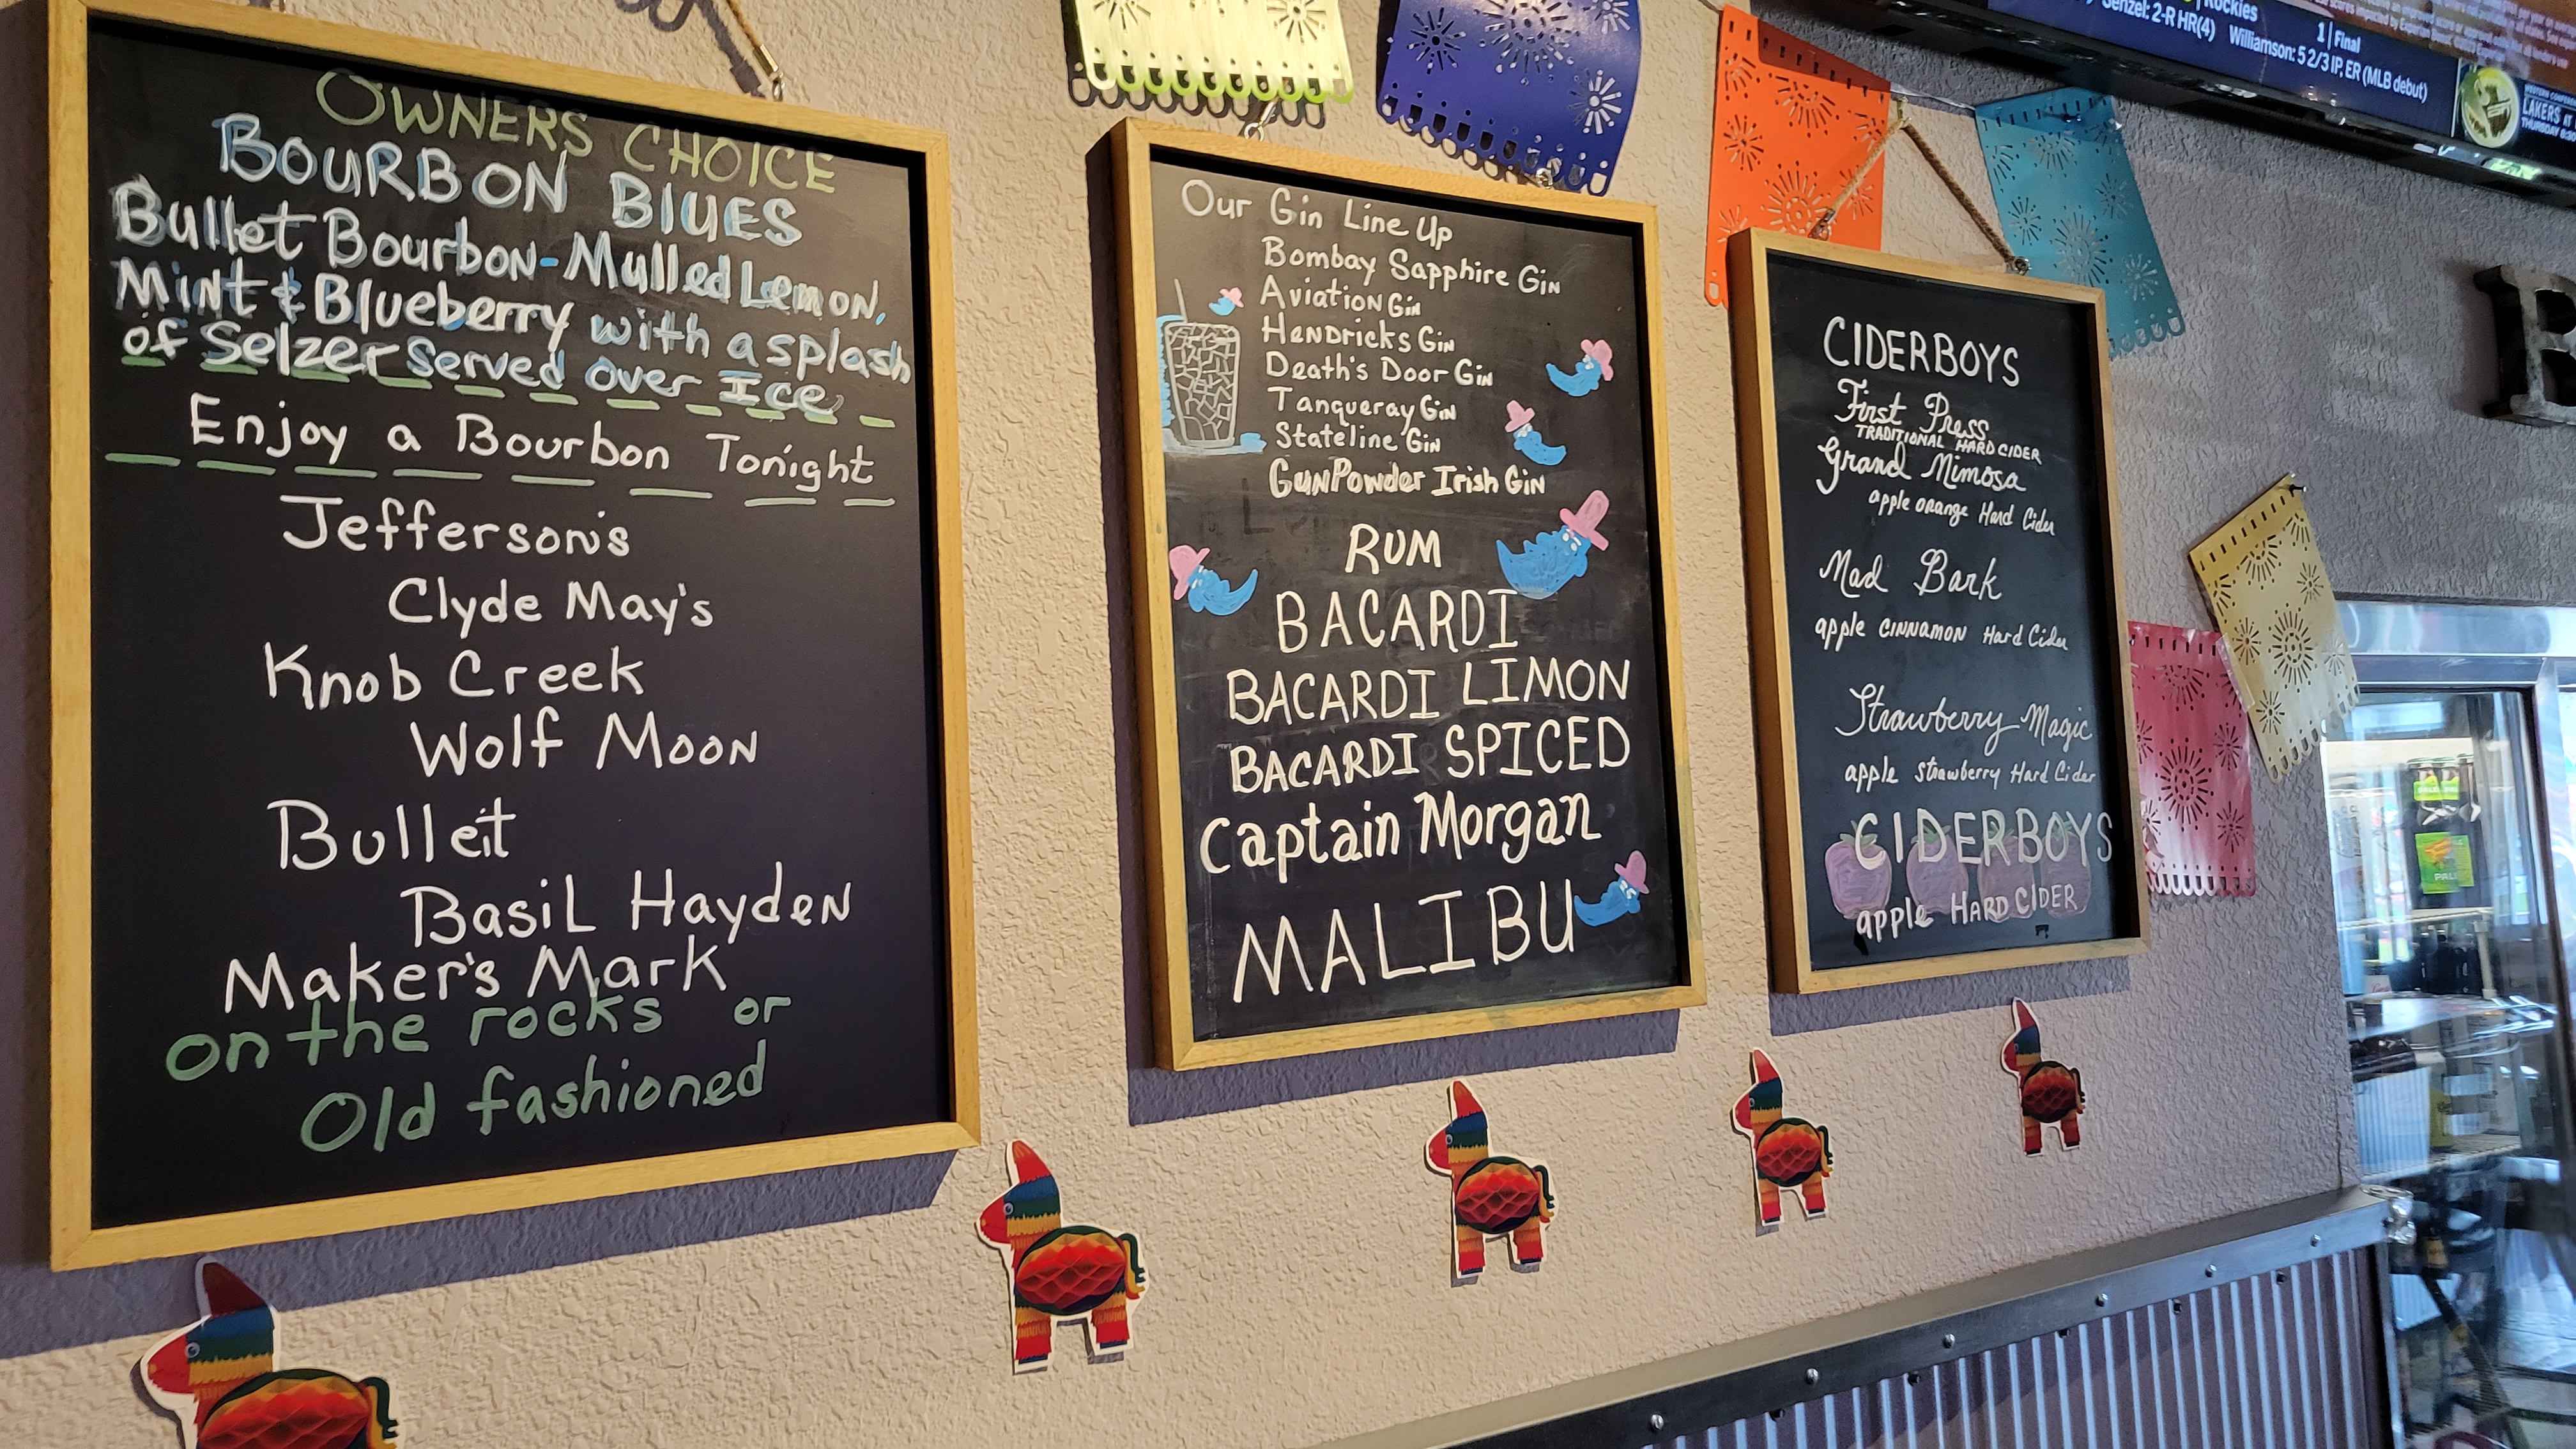 OWNERS CHOICE
BOURBON BLUES
Bullet Bourbon-Mulled Lemon,
Mint & Blueberry with a splash
of Selzer Served over Ice
Enjoy a Bourbon Tonight
Jefferson's
Clyde May's
Knob Creek
Wolf Moon
Bulleit
Basil Hayden
Maker's Mark
on the rocks or
Old fashioned
Our Gin Line Up
Bombay Sapphire Gin
Aviation Gin
Hendricks Gin
Death's Door Gin
Tanqueray Gin
Stateline Gin
GunPowder Irish Gin
RUM
BACARDI
BACARDI LIMON
BACARDI SPICED
Captain Morgan
MALIBU
CIDERBOYS
First Press
TRADITIONAL HARD CIDER
Grand Mimosa
apple orange Hard Cider
Mad Bark
apple cinnamon Hard Cider
Strawberry Magic
apple strawberry Hard Cider
CIDERBOYS
apple HARD CIDER
Rockies 1 | Final
Senzel: 2-R HR(4) Williamson: 5 2/3 IP, ER (MLB debut)
LAKERS AT
THURSDAY